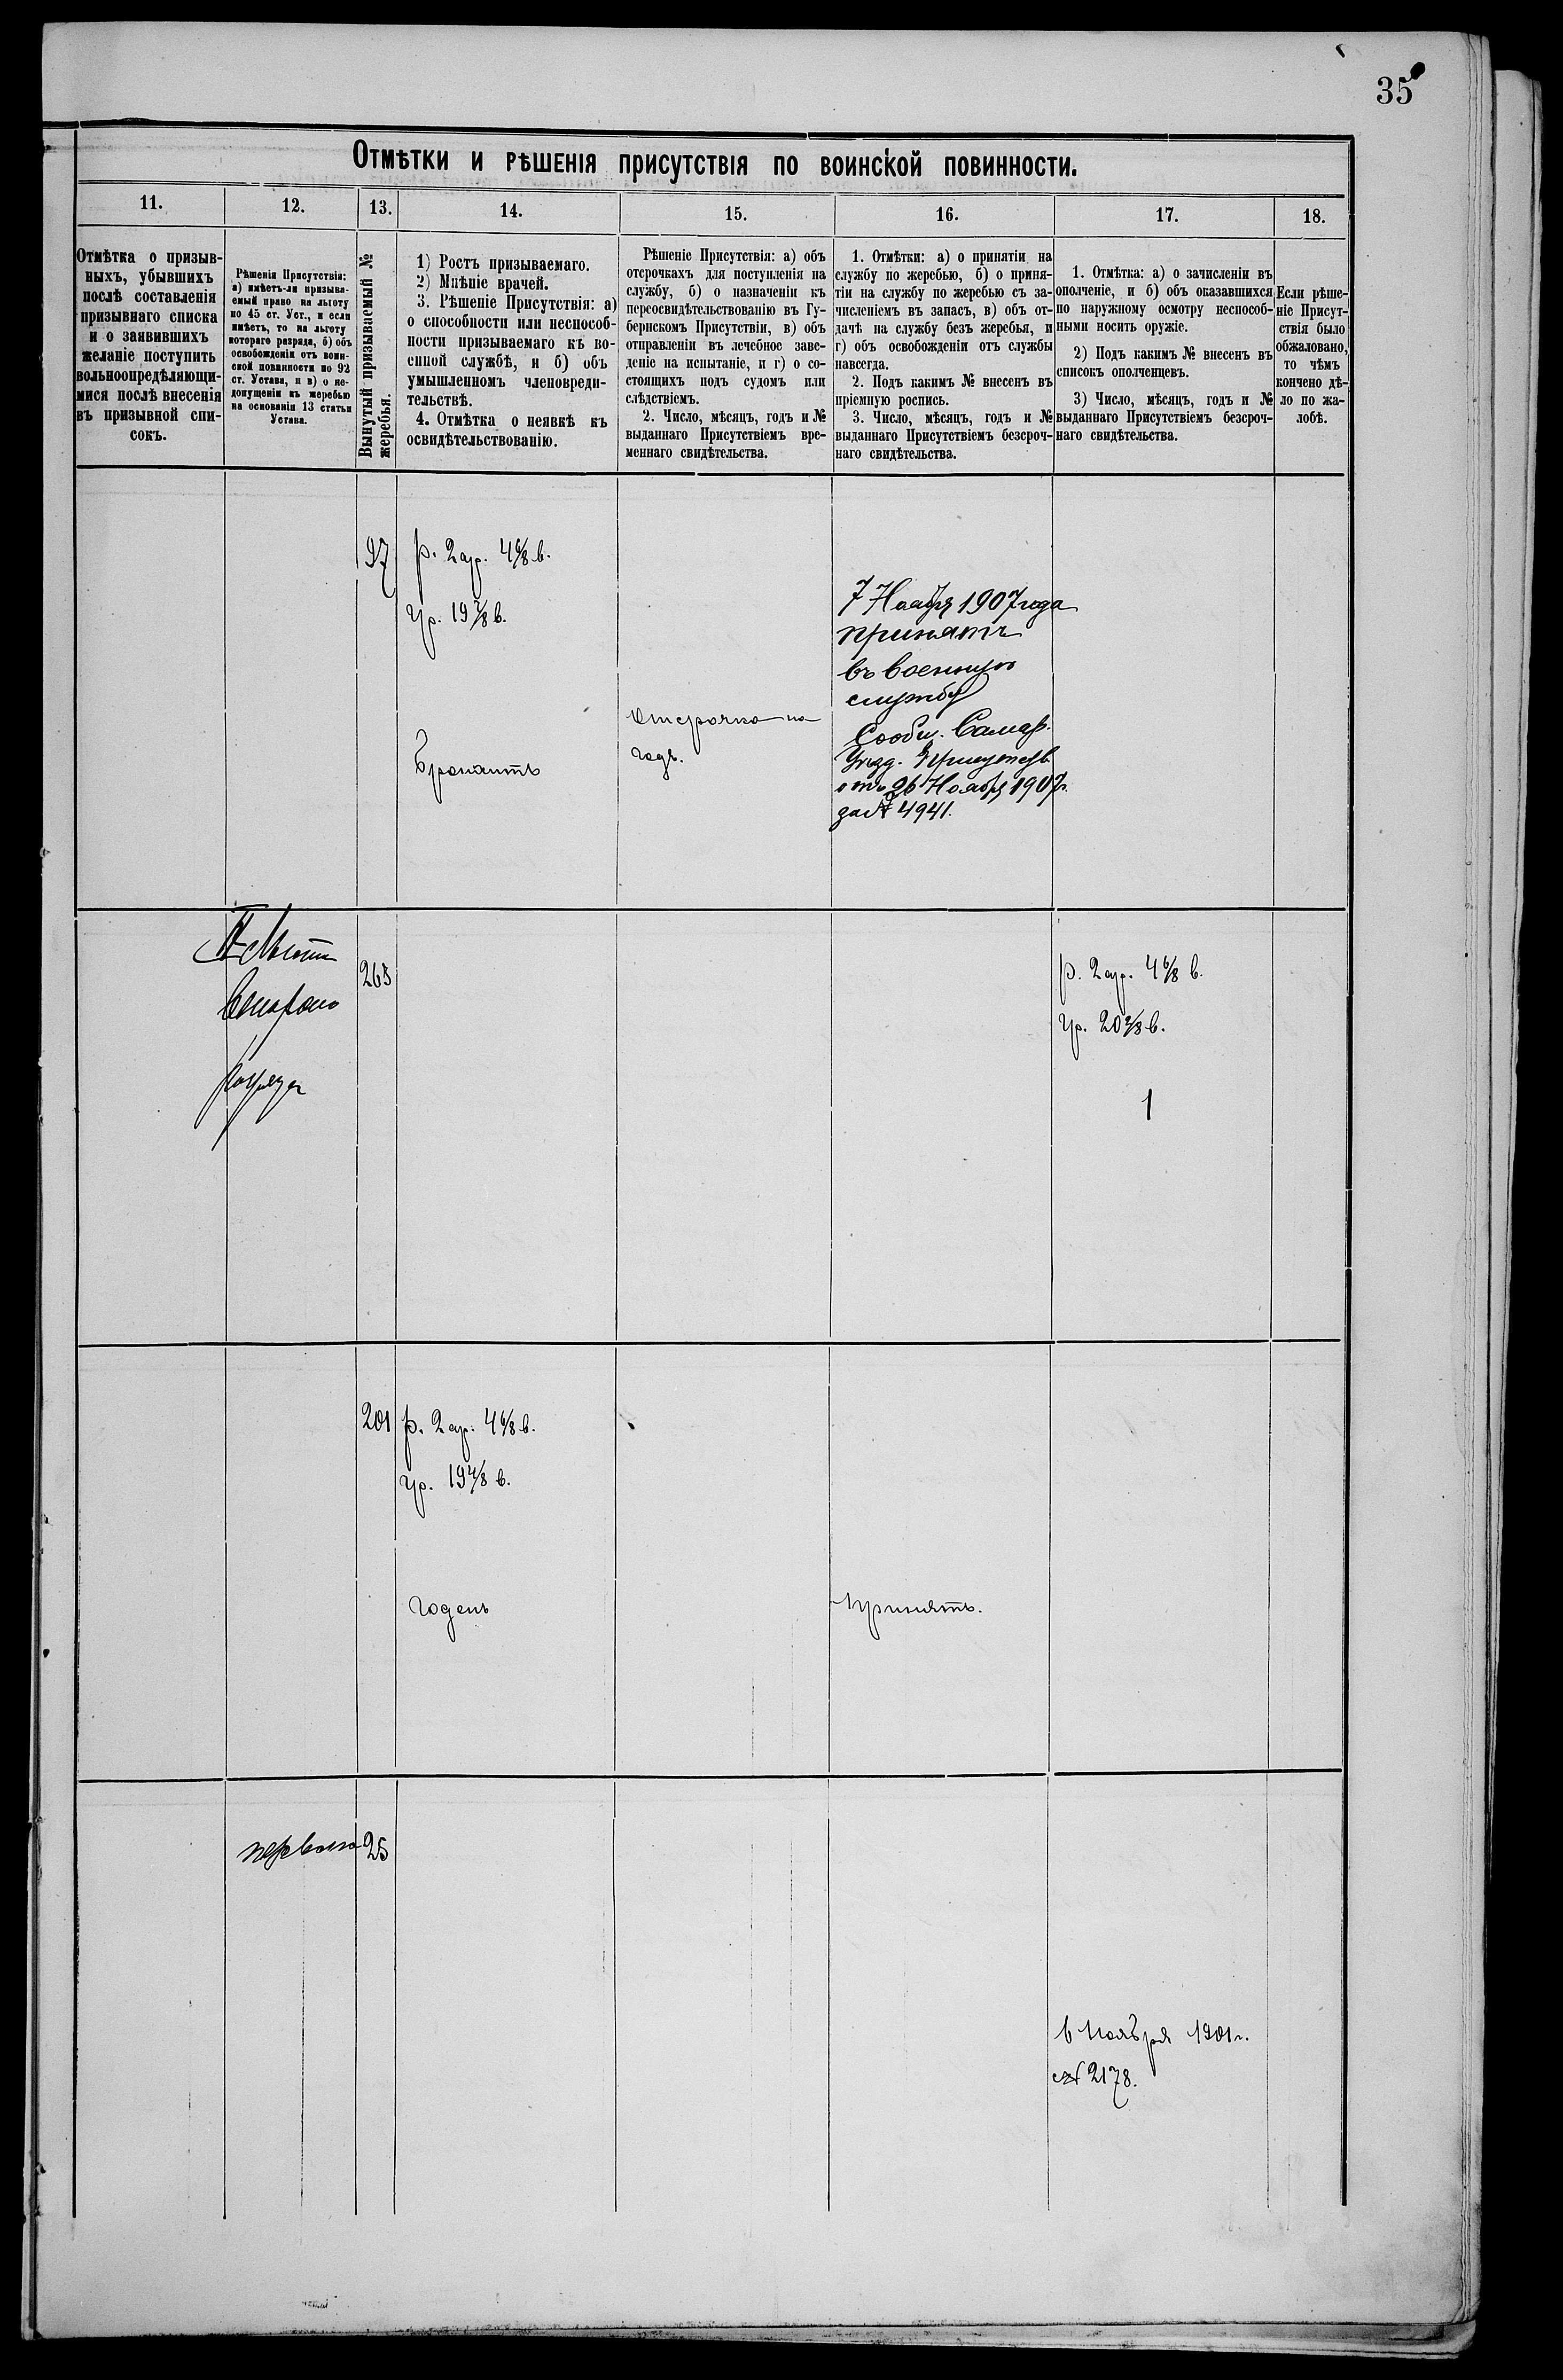 35
Отмѣтки и рѣшенія присутствія по воинской повинности.
11.
12.
13.
14.
15.
16.
17.
18.
Отмѣтка о призыв-
ныхъ, убывшихъ
послѣ составленія
призывнаго списка
и о заявившихъ
желаніе поступить
вольноопредѣляющи-
мися послѣ внесенія
въ призывной спи-
сокъ.
Рѣшенія Присутствія:
а) имѣетъ-ли призыва-
емый право на льготу
по 45 ст. Уст., и если
имѣетъ, то на льготу
котораго разряда, б) объ
освобожденіи отъ воин-
ской повинности по 92
ст. Устава, и в) о не-
допущеніи къ жеребью
на основаніи 13 статьи
Устава.
Вынутый призываемый №
жеребья.
1) Ростъ призываемаго.
2) Мнѣніе врачей.
3. Рѣшеніе Присутствія: а)
о способности или неспособ-
ности призываемаго къ во-
енной службѣ, и б) объ
умышленномъ членовреди-
тельствѣ.
4. Отмѣтка о неявкѣ къ
освидѣтельствованію.
Рѣшеніе Присутствія: а) объ
отсрочкахъ для поступленія на
службу, б) о назначеніи къ
переосвидѣтельствованію въ Гу-
бернскомъ Присутствіи, в) объ
отправленіи въ лечебное заве-
деніе на испытаніе, и г) о со-
стоящихъ подъ судомъ или
слѣдствіемъ.
2. Число, мѣсяцъ, годъ и №
выданнаго Присутствіемъ вре-
меннаго свидѣтельства.
1. Отмѣтки: а) о принятіи на
службу по жеребью, б) о приня-
тіи на службу по жеребью съ за-
численіемъ въ запасъ, в) объ от-
дачѣ на службу безъ жеребья, и
г) объ освобожденіи отъ службы
навсегда.
2. Подъ какимъ № внесенъ въ
пріемную роспись.
3. Число, мѣсяцъ, годъ и №
выданнаго Присутствіемъ безсроч-
наго свидѣтельства.
1. Отмѣтка: а) о зачисленіи въ
ополченіе, и б) объ оказавшихся
по наружному осмотру неспособ-
ными носить оружіе.
2) Подъ какимъ № внесенъ въ
списокъ ополченцевъ.
3) Число, мѣсяцъ, годъ и №
выданнаго Присутствіемъ безсроч-
наго свидѣтельства.
Если рѣше-
ніе Присут-
ствія было
обжаловано,
то чѣмъ
кончено дѣ-
ло по жа-
лобѣ.
97
р. 2 ар. 4 6/8 в.
гр. 19 7/8 в.
Отсрочка на
годъ.
7 Ноября 1907 года
принятъ
въ военную
службу
Сообщ. Самар.
Уѣзд. Присутств.
отъ 26 Ноября 1907 г.
за № 4941.
Льготы
Второго
разряда
265
р. 2 ар. 4 6/8 в.
гр. 20 2/8 в.
1
201
р. 2 ар. 4 6/8 в.
гр. 19 4/8 в.
Годенъ
Принятъ.
перваго
25
6 Ноября 1901 г.
№ 2178.